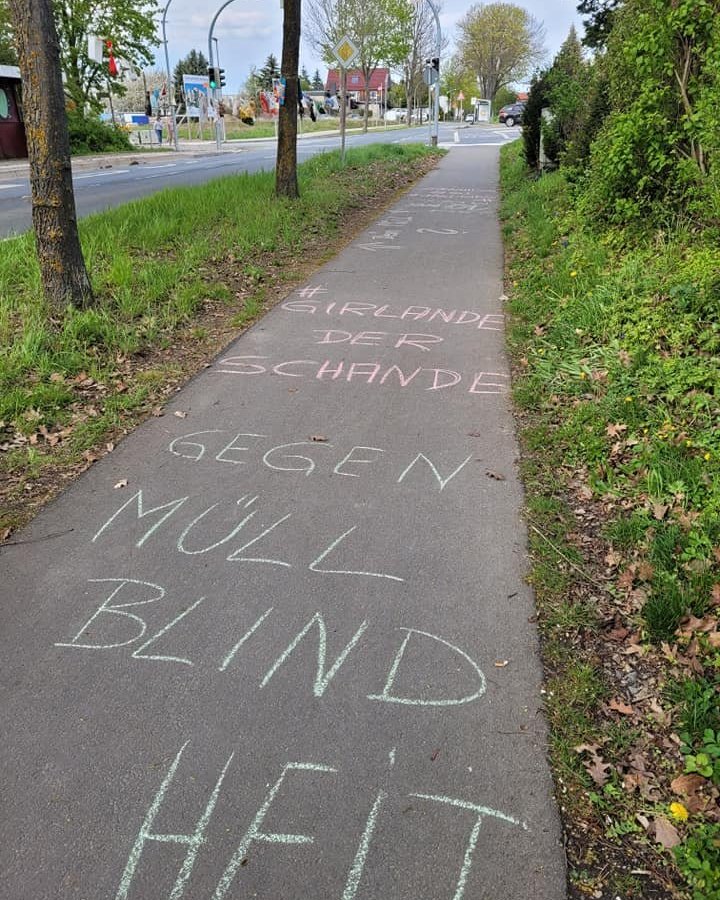 #
GIRLANDE
DER
SCHANDE
GEGEN
MÜLL
BLIND
HEiT